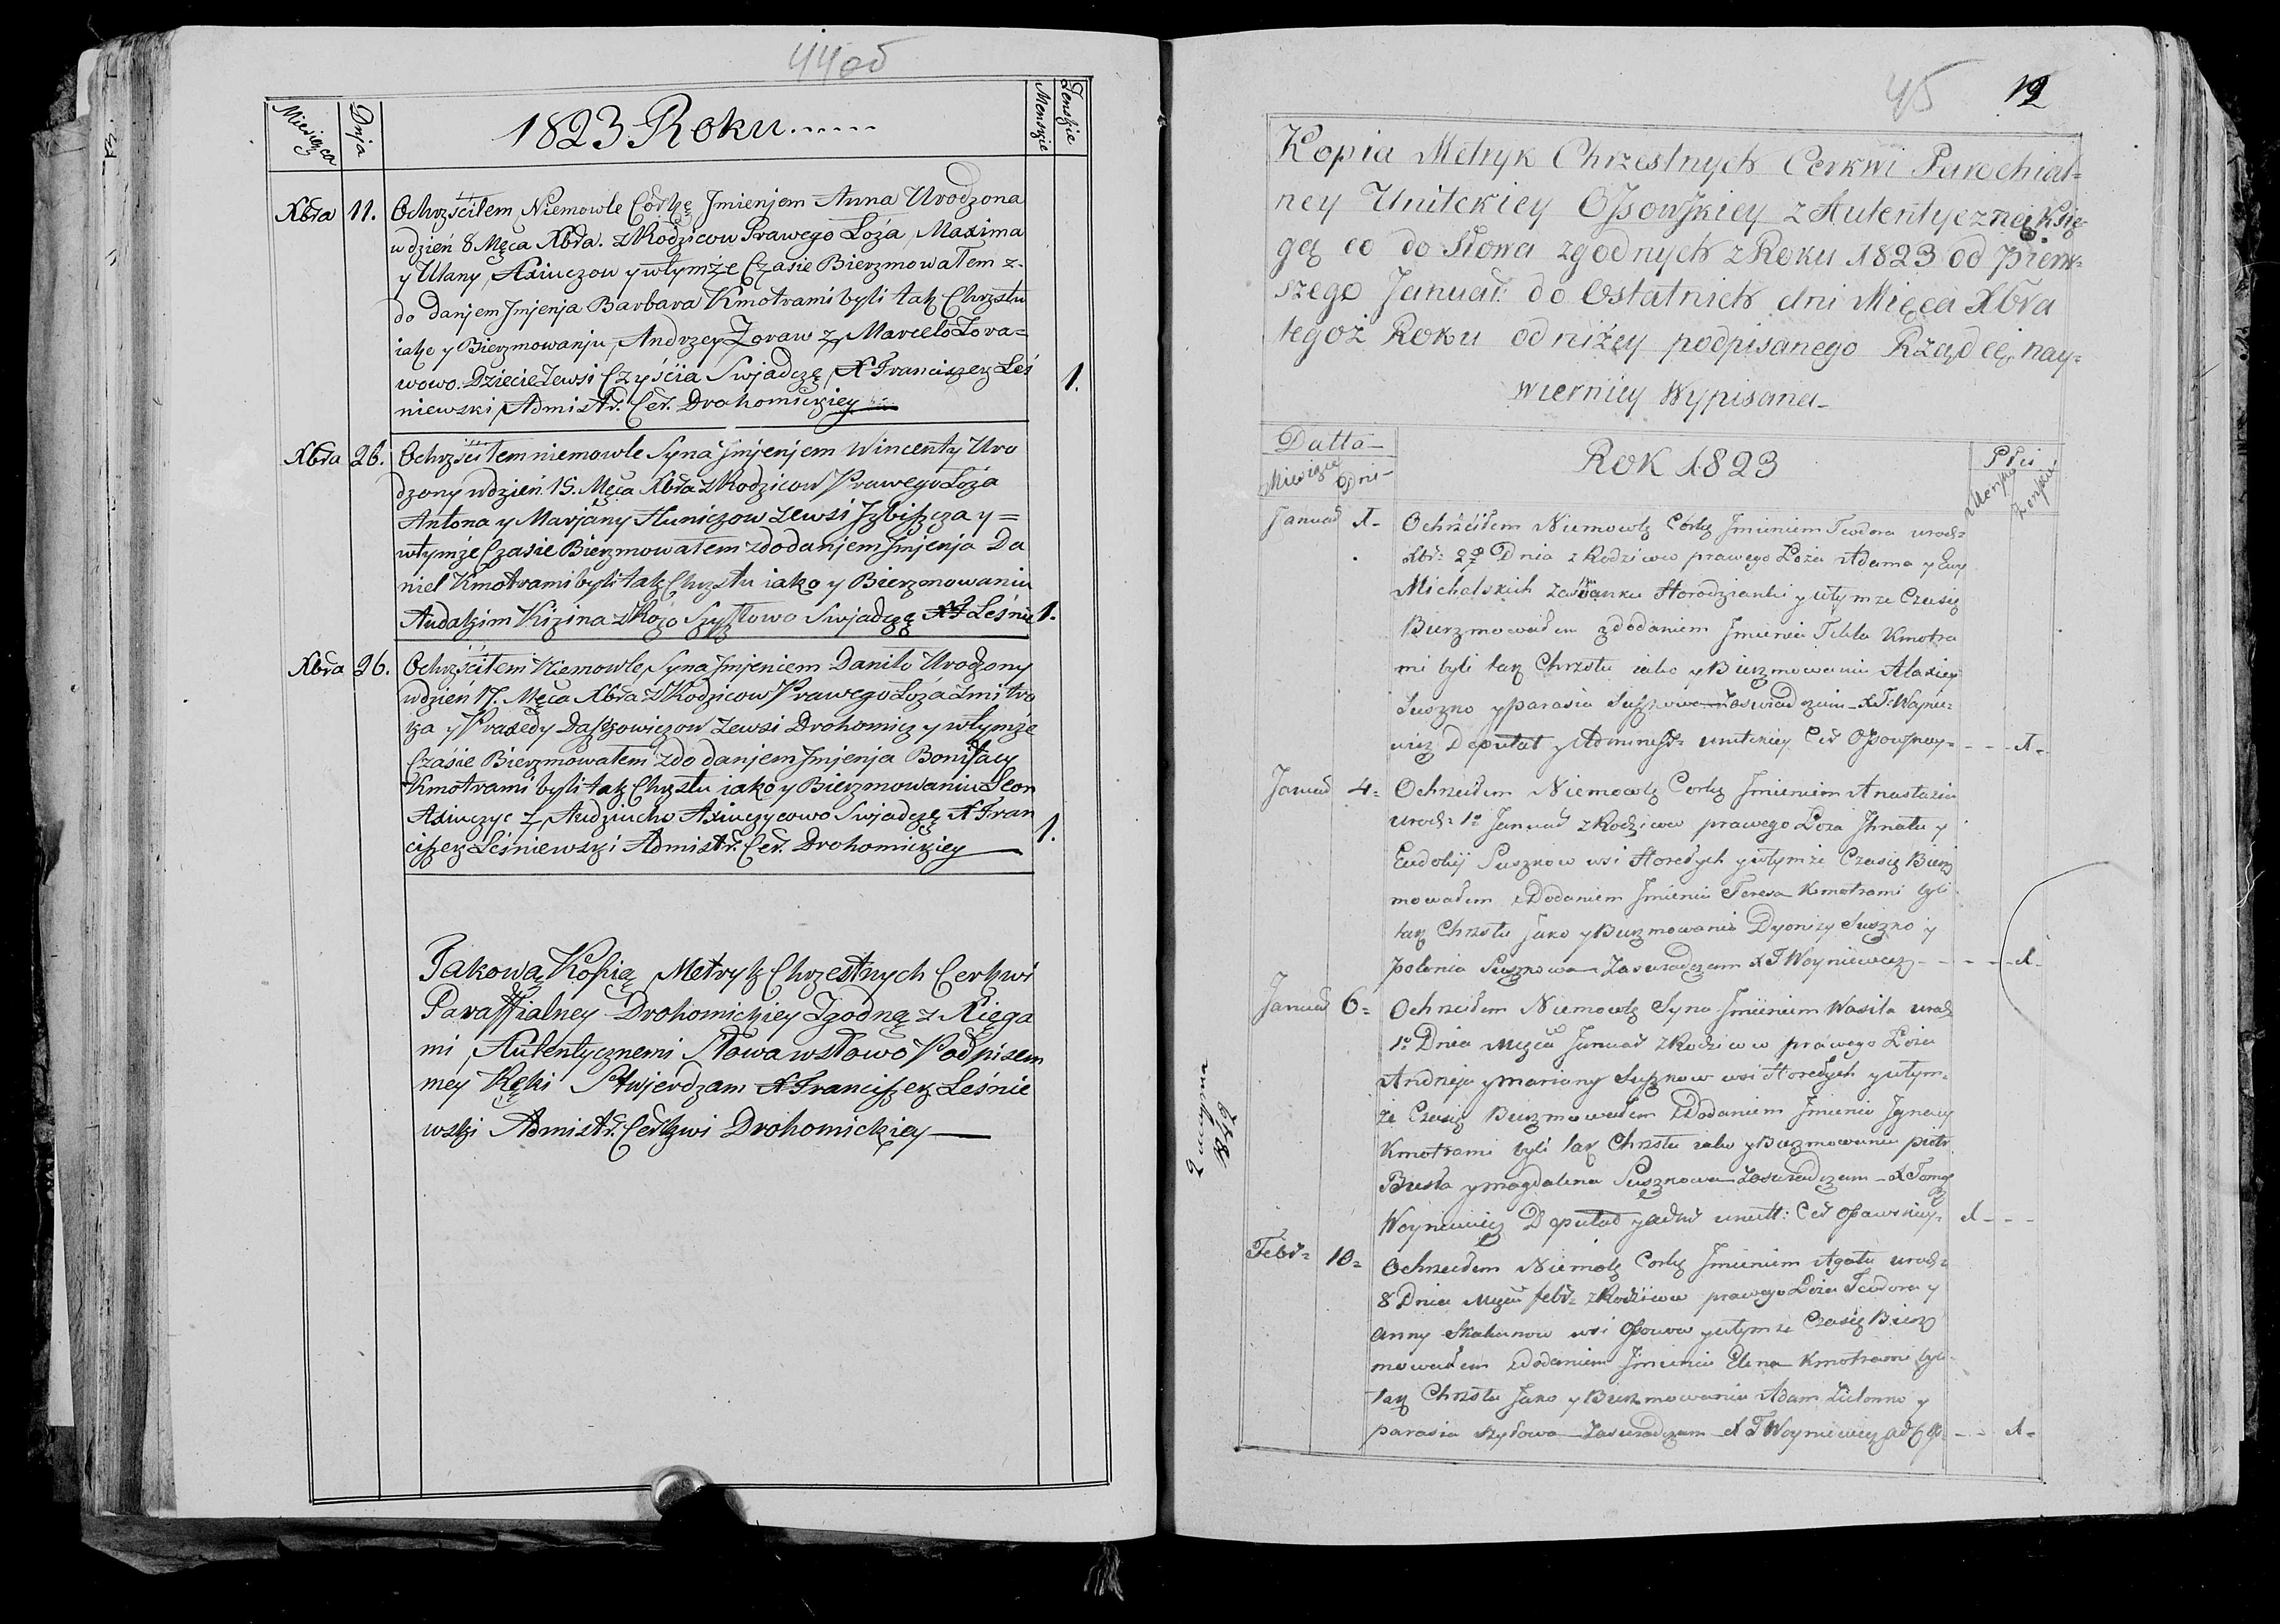 44об
Miesiąca Dnja 1823 Roku...... Menszie Żenszie
Xbra 11. Ochrzściłem Niemowle Corkę Jmienjem Anna Urodzona
w dzień 8 Męca Xbra. z Rodzicow Prawego Łoża Maxima
y Ulany Axiuczow y wtymże Czasie Bierzmowałem z
do danjem Jmjenja Barbara Kmotrami byli tak Chrzstu
iako y Bierzmowanju Andrzey Żoraw z Marcelo Żora=
wowo. Dziecie Zewsi Czyścia Swjadczę X Franciszek Leś
niewski Admistr. Cer. Drohomickiey 1.
Xbra 26. Ochrzściłem niemowle Syna Jmjenjem Wincenty Uro
dzony wdzień 15. Męca Xbra z Rodzicow Prawego Łoża
Antona y Marjany Huniczow zewsi Jzbiszcza y=
wtymże Czasie Bierzmowałem zdodanjem Jmjenja Da
niel Kmotrami byli tak Chrzstu iako y Bierzmowaniu
Audakim Kizina z Rozo Szyłłowo Swjadczę XF Leśnie 1.
Xbra 26. Ochrzściłem Niemowle Syna Jmjeniem Daniło Urodzony
wdzień 17. Męca Xbra z Rodzicow Prawego Łoża Zmitro
ka y Praxedy Daszkowiczow zewsi Drohomicz y wtymże
Czasie Bierzmowałem zdo danjem Jmjenja Bonifacy
Kmotrami byli tak Chrzstu iako y Bierzmowaniu Leon
Axiuczyc z Audziucho Axiuczycowo Swjadczę X Fran
ciszek Leśniewski Admistr. Cer. Drohomickiey 1.
Jakową Kopią Metryk Chrzestnych Cerkwi
Paraffialney Drohomickiey Zgodną z Xięga
mi Autentycznemi Słowa wsłowo Podpisem
mey Ręki Stwjerdzam X Franciszek Leśnie
wski Admistr. Cerkwi Drohomickiey
45 12
Kopia Metryk Chrzestnych Cerkwi Parochial=
ney Unitckiey Ossowskiey z Autentyczną Księ-
gą co do Słowa zgodnych z Roku 1823 od pierw=
szego Januar: do Ostatnich dni Mięca Xbra
tegoż Roku od niżey podpisanego Rządcę, nay=
wierniey Wypisana
Datta ROK 1823 Płci
Miesięce Dni Menska Żenska
Januar 1 Ochrzciłem Niemowlę Corkę Jmieniem Teodora urodz=
Xbr= 27 Dnia z Rodzicow prawego Łoża Adama y Ewy
Michalskich zascianku Horodzianki y wtymże Czasie
Bierzmowałem zdodaniem Jmienia Tekla Kmotra
mi byli tak Chrzstu iako y Bierzmowaniu Alaxiey
Suszko y parasia Suszkowa Zaswiadczam X T: Woynie=
wicz Deputat y Administr= unitckiey Cer Ossowskiey 1
Januar 4= Ochrzciłem Niemowlę Corkę Jmieniem Anastazia
urodz= 1º Januar z Rodzicow prawego Łoża Jhnata y
Eudokij Suszkow wsi Horełych y wtymże Czasie Bierz
mowałem zDodaniem Jmienia Teresa Kmotrami byli
tak Chrzstu Jako y Bierzmowaniu Dyonizy Suszko y
polonia Suszkowa Zaswiadczam X T Woyniewicz 1
Januar 6= Ochrzciłem Niemowlę Syna Jmieniem Wasila urodz
1º Dnia Męca Januar z Rodzicow prawego Łoża
Andrzeja y Mariany Suszkow wsi Horełych y wtym=
że Czasie Bierzmowałem zDodaniem Jmienia Jgnacy
Kmotrami byli tak Chrzstu iako y Bierzmowaniu piotr
y Magdalena Suszkowa Zaswiadczam X Tomasz
Woyniewicz Deputat y Adm unitt: Cer Ossowskiey= 1
Febr= 10= Ochrzciłem Niemolę Corkę Jmieniem Agata urodz=
8 Dnia Męca febr= z Rodzicow prawego Łoża Teodora y
Anny Skakunow wsi Ossowa y wtymże Czasie Bierz
mowałem zdodaniem Jmienia Elena Kmotrami byli
tak Chrzstu Jako y Bierzmowaniu Adam y
parasia Zaswiadczam X T Woyniewicz 1